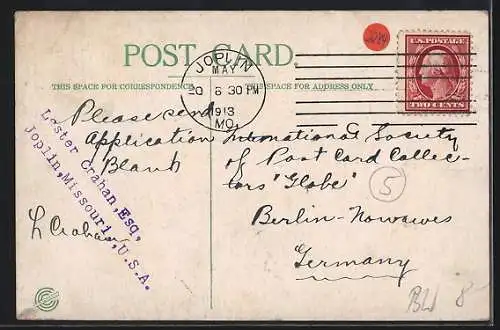 POST CARD.
THIS SPACE FOR CORRESPONDENCE
THIS SPACE FOR ADDRESS ONLY
JOPLIN
MAY
20
6 30 PM
1913
MO.
U.S. POSTAGE
TWO CENTS
Please send
Application
Blank
L Crahan
Lester Crahan, Esq,
Joplin, Missouri, U.S.A.
International Society
of Post Card Collec-
tors "Globe"
Berlin-Nowawes
Germany
5
8